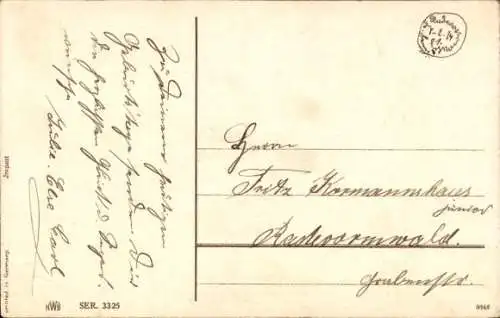 Zu Deinem heutigen
Geburtstage senden Dir
die herzlichsten Glück u. Segens
wünsche
Julie. Else Carl
Herrn
Fritz Kormannshaus
junior
Radevormwald.
Grabenstr.
NWB
SER. 3325